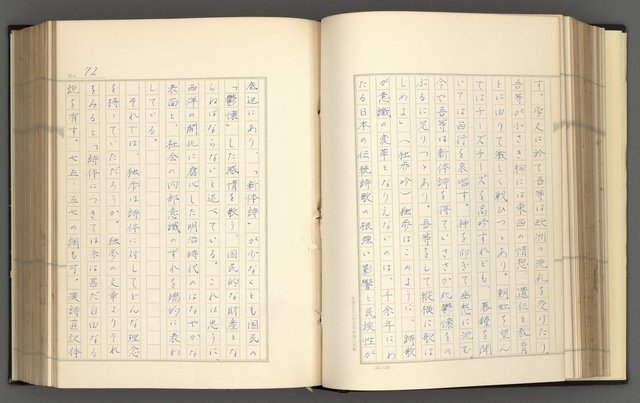 す。学文に於て吾等は欧洲の洗礼を受けたり。
吾等が小さき胸には東西の情想、遺伝と教育
とに由りて激しく戦ひつゝあり。朝虹を望ん
ではチーズチーズを高吟すれども、暮鐘を聞
いては西行を哀唱す。神を仰ぎて幽愁に沈む。
今や吾等は新体詩を得ていさゝか此鬱懐をの
ぶるに足りつゝあり。吾等をして縦横に歌は
しめよ」(独歩吟)独歩はこのように、詩歌
が意識の変革となりえないのは、千余年にわ
たる日本の伝統詩歌の根強い影響と民族性が
No. 72
底辺にあり、「新体詩」が少なくとも国民の
「鬱懐」した感情を歌う、国民的な財産とな
らねばならないと述べている。これは思うに、
西洋の開化に腐心した明治時代のはなやかな
表面と、社会の内部意識のずれを端的に表わ
している。
それでは、独歩は詩体に対してどんな理念
を持っていただろうか。独歩の文章よりそれ
をみると「詩体につきては余は甚だ自由なる
説を有す。七五、五七の調も可。漢詩直訳体
(20×20)